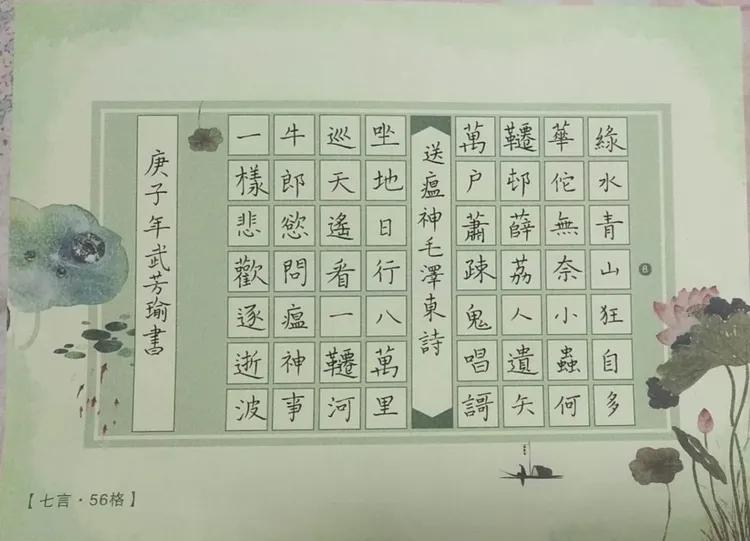 綠水青山狂自多
華佗無奈小蟲何
韆邨薜荔人遺矢
萬户蕭疎鬼唱謌
送瘟神毛澤東詩
坐地日行八萬里
巡天遙看一韆河
牛郎慾問瘟神事
一樣悲歡逐逝波
庚子年武芳瑜書
8
【七言·56格】